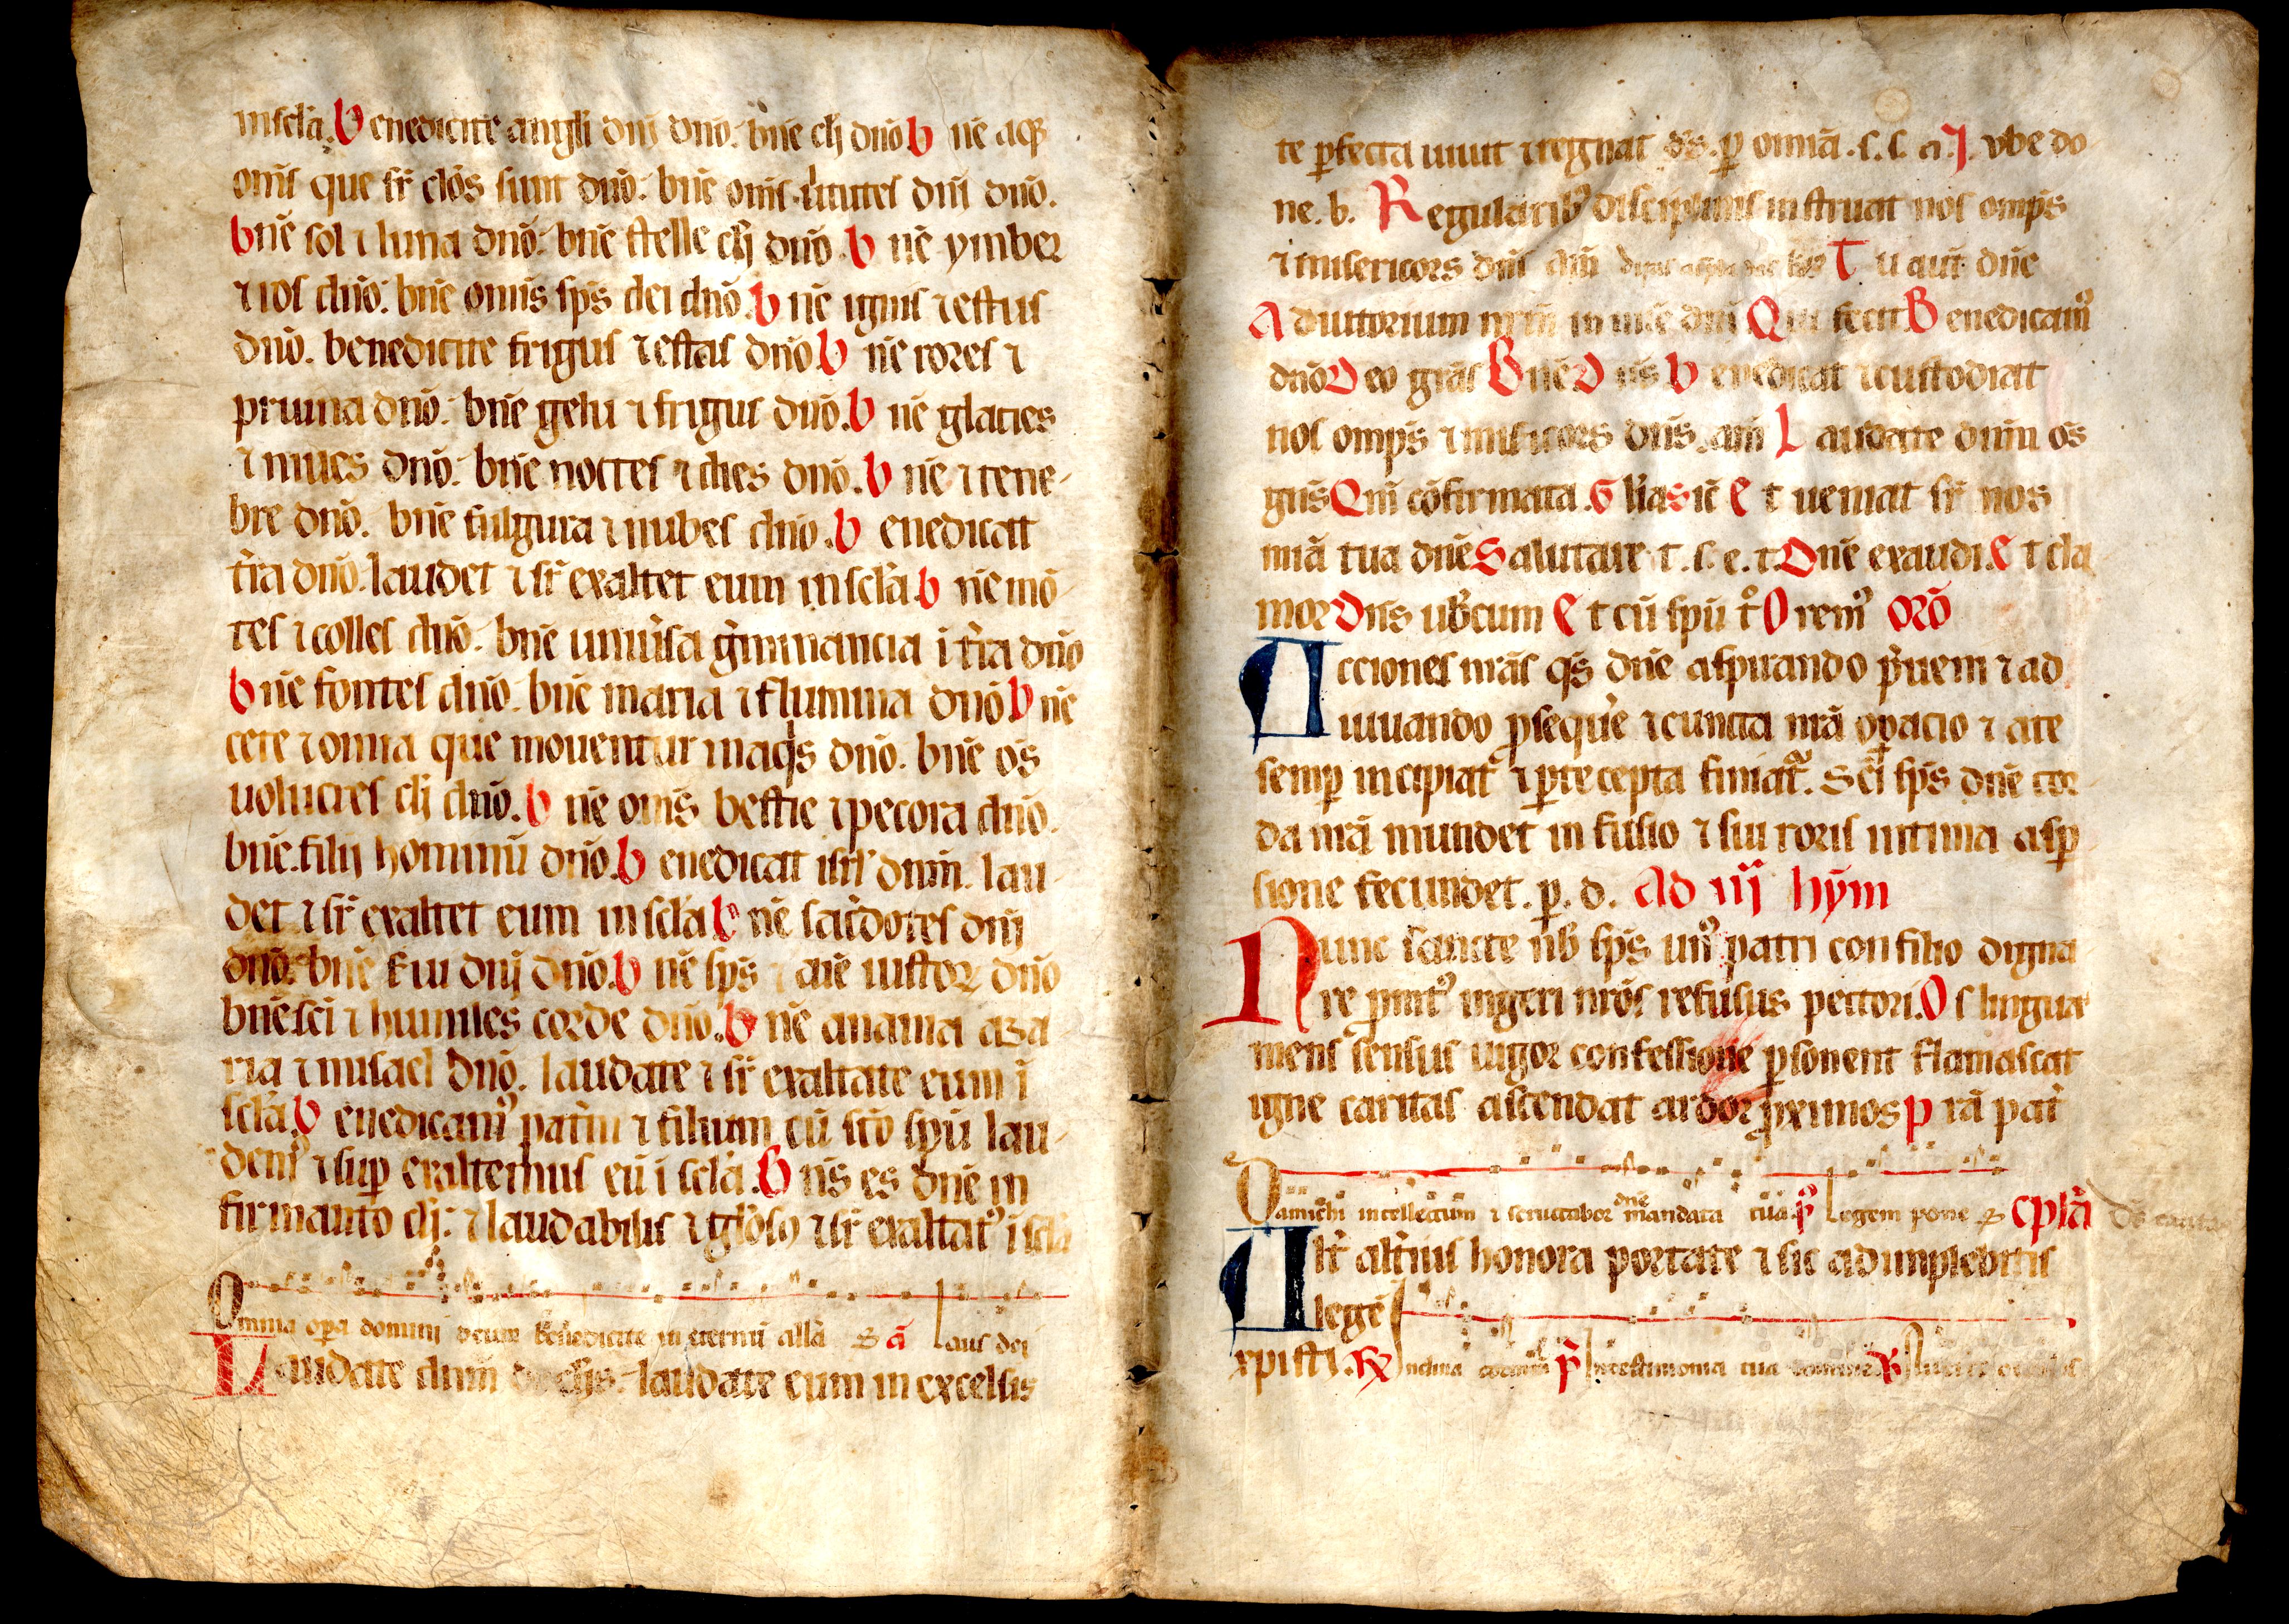 inscła. Benedicite angli dnī dnō. bn̄e cłi dnō. bn̄e aq̄
om̄s que sr̄ cłos sunt dnō. bn̄e om̄s uirtutes dnī dnō.
bn̄e sol ⁊ luna dnō. bn̄e stelle cłi dnō. bn̄e ymber
⁊ ros dnō. bn̄e om̄s sps̄ dei dnō. bn̄e ignis ⁊ estus
dnō. benedicite frigus ⁊ estas dnō bn̄e rores ⁊
pruina dnō. bn̄e gelu ⁊ frigus dnō. bn̄e glacies
⁊ niues dnō. bn̄e noctes ⁊ dies dnō. bn̄e ⁊ tene-
bre dnō. bn̄e fulgura ⁊ nubes dnō. benedicat
tr̄ra dnō. laudet ⁊ sr̄ exaltet eum inscła. bn̄e mō-
tes ⁊ colles dnō. bn̄e uniuersa germinancia ī tr̄ra dnō
bn̄e fontes dnō. bn̄e maria ⁊ flumina dnō bn̄e
cete ⁊ omia que mouentur in aq̄s dnō. bn̄e os̄
uolucres cłi dnō. bn̄e om̄s bestie ⁊ pecora dnō.
bn̄e filij hominū dnō. benedicat isrł dnm̄. lau-
det ⁊ sr̄ exaltet eum inscła bn̄e sacerdotes dnī
dnō. bn̄e s̄ui dnī dnō. bn̄e sps̄ ⁊ aīe iustoꝝ dnō
bn̄e sci ⁊ humiles corde dnō. bn̄e anania aza-
ria ⁊ misael dnō. laudate ⁊ sr̄ exaltate eum ī
scła. benedicamꝰ patr̄m ⁊ filium cū sc̄o spū lau-
demꝰ ⁊ suꝑ exaltemus eū ī scła. Bn̄s es dn̄e in
firmanto cłi. ⁊ laudabilis ⁊ głosꝰ ⁊ sr̄ exaltatꝰ ī scła
Omnia oꝑa domini benedicite in eternū allā Laus dei
Laudate dnm̄ de cłis. laudate eum in excelsis
te ꝑfecta uiuit ⁊ regnat ds̄. ꝑ omnā. s. s. a. J ube do
ne. b. Regularibꝰ disciplinis instruat nos omps̄
⁊ misericors dn̄s am̄ Tu aut̄ dn̄e
Adiutorium nr̄m in nōīe dnī Qui fecit Benedicamꝰ
dnō Deo grās Bn̄e Dn̄s benedicat ⁊ custodiat
nos omps̄ ⁊ mis̄icors dn̄s. am̄ Laudate dnm̄ os̄
gn̄s Qm̄ cōfirmata. Głia sic̄ Et ueniat sr̄ nos
mīā tua dn̄e Salutare t. s. e. t. Dn̄e exaudi. Et cla
mor Dn̄s uobcum Et cū spū tº Oremꝰ Orō
Acciones nrās qs̄ dn̄e aspirando p̄ueni ⁊ ad
iuuando ꝓsequere ⁊ cuncta nrā oꝑacio ⁊ a te
semꝑ incipiat ⁊ ꝑ te cepta finiatr̄. Sc̄i sps̄ dn̄e cor-
da nrā mundet in fusio ⁊ sui roris intima asꝑ
sione fecundet. ꝑ. d. Ad iij hym̄
Nunc sancte nb̄ sps̄ unꝰ patri con filio digna
re ꝓmtꝰ ingeri nrōs refusus pectori. Os lingua
mens sensus uigor confessione ꝑsonent flamascat
igne caritas ascendat ardor ꝓximos prā pat̄
Da michi intellectum ⁊ scrutabor dn̄e mandata tua. pꝰ Legem pone cpłā
Alt̄ alt̄rius honora portate ⁊ sic adimplebitis
legē
xpisti. R⁊ Inclina p̄ In testimonia tua